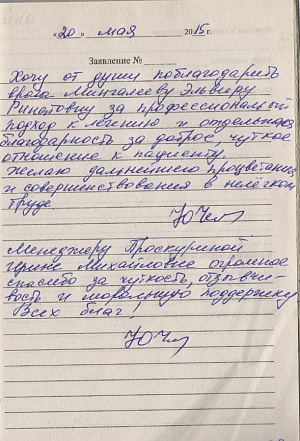 «20» мая 2015 г.
Заявление №
Хочу от души поблагодарить
врача Мингалееву Эльвиру
Ринатовну за профессиональный
подход к лечению и отдельная
благодарность за доброе чуткое
отношение к пациенту.
Желаю дальнейшего процветания
и совершенствования в нелёгком
труде
Менеджеру Проскурниной
Ирине Михайловне огромное
спасибо за чуткость, отзывчи-
вость и моральную поддержку
Всех благ!